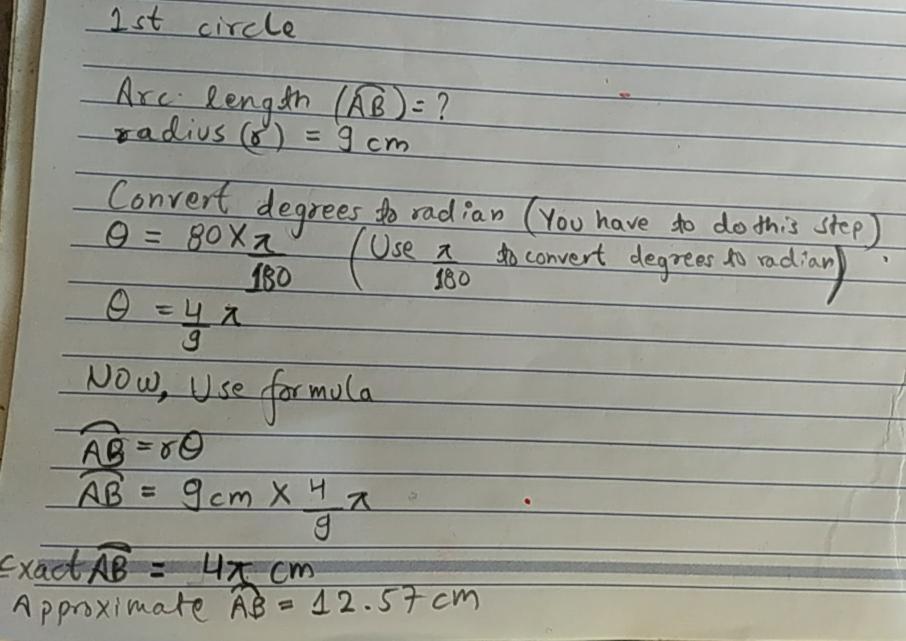 1st circle
Arc length (AB) = ?
radius (r) = 9 cm
Convert degrees to radian (You have to do this step)
θ = 80 × π/180 (Use π/180 to convert degrees to radian)
θ = 4/9 π
Now, Use formula
AB = rθ
AB = 9 cm × 4/9 π
Exact AB = 4π cm
Approximate AB = 12.57 cm